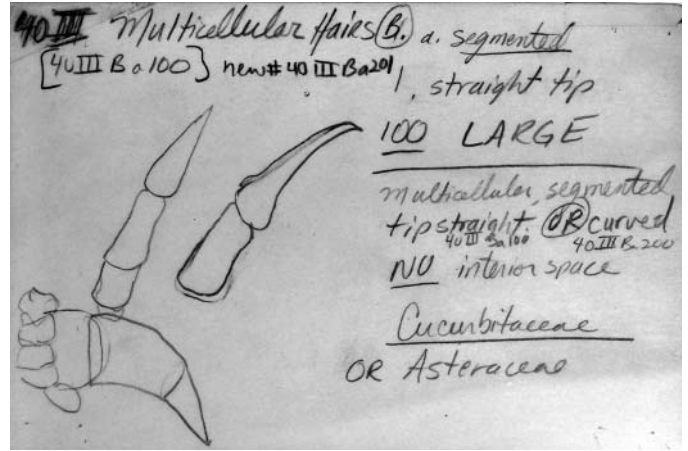 40 III Multicellular Hairs B. a. segmented
[40 III B a 100] new# 40 III Ba201
1, straight tip
100 LARGE
multicellular, segmented
tip straight. OR curved
40 III Ba100 40 III Ba 200
NO interior space
Cucurbitaceae
OR Asteraceae